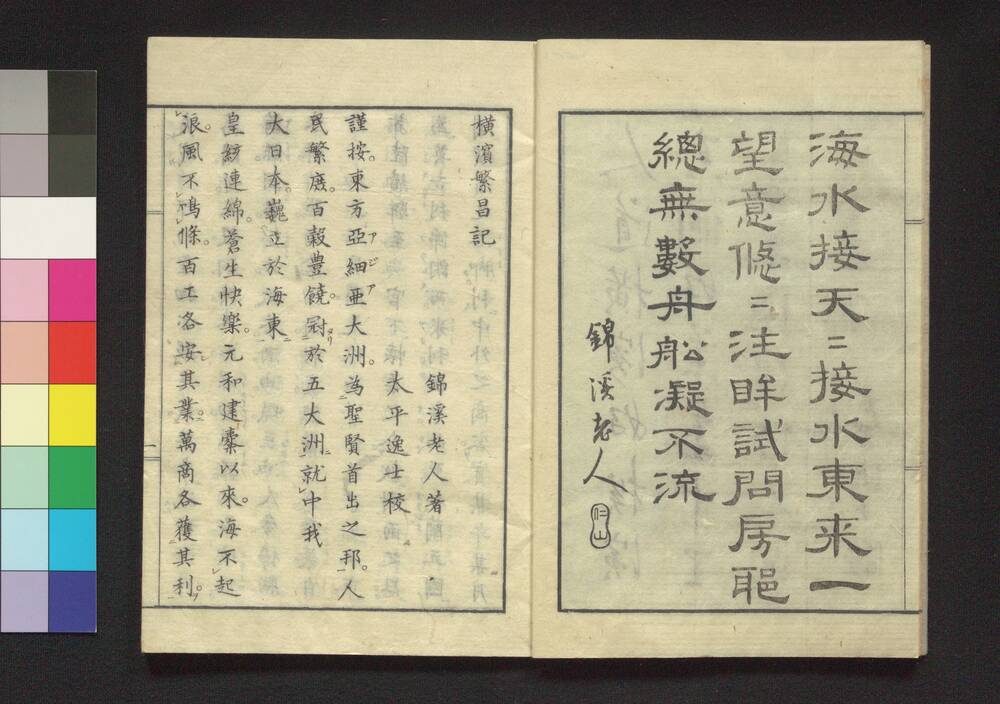 海水接天〻接水東来一
望意悠〻注眸試問房䏈
總無數舟船凝不流
錦溪老人
横濱繁昌記
錦溪老人著
太平逸士校
謹按。東方亞細亜大洲。為聖賢首出之邦。人
アジア
民繁庶。百穀豊饒。冠於五大洲就中我
大日本。巍立於海東
皇統連綿。蒼生快樂。元和建櫜以來。海不起
浪。風不鳴條。百工各安其業。萬商各獲其利。